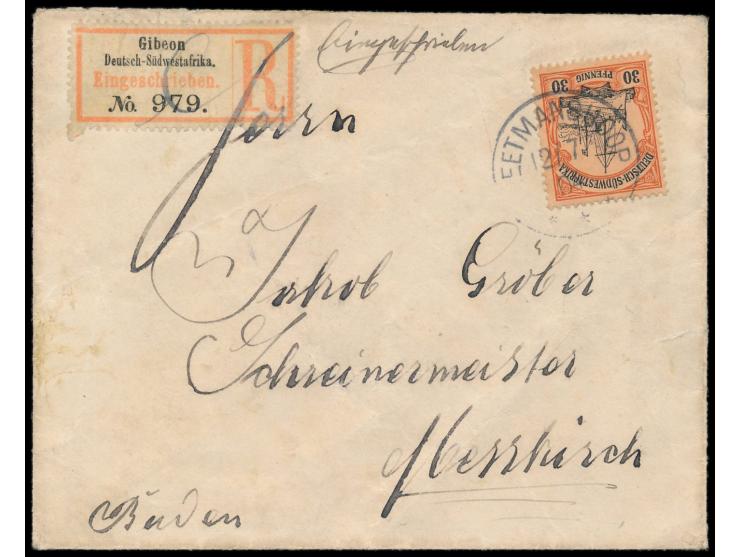 Gibeon
Deutsch-Südwestafrika.
Eingeschrieben.
No. 979.
R
Eingeschrieben
30 PFENNIG 30
DEUTSCH-SÜDWESTAFRIKA
EETMANSHOOP
Herrn
Jakob Gröber
Schreinermeister
Messkirch
Baden